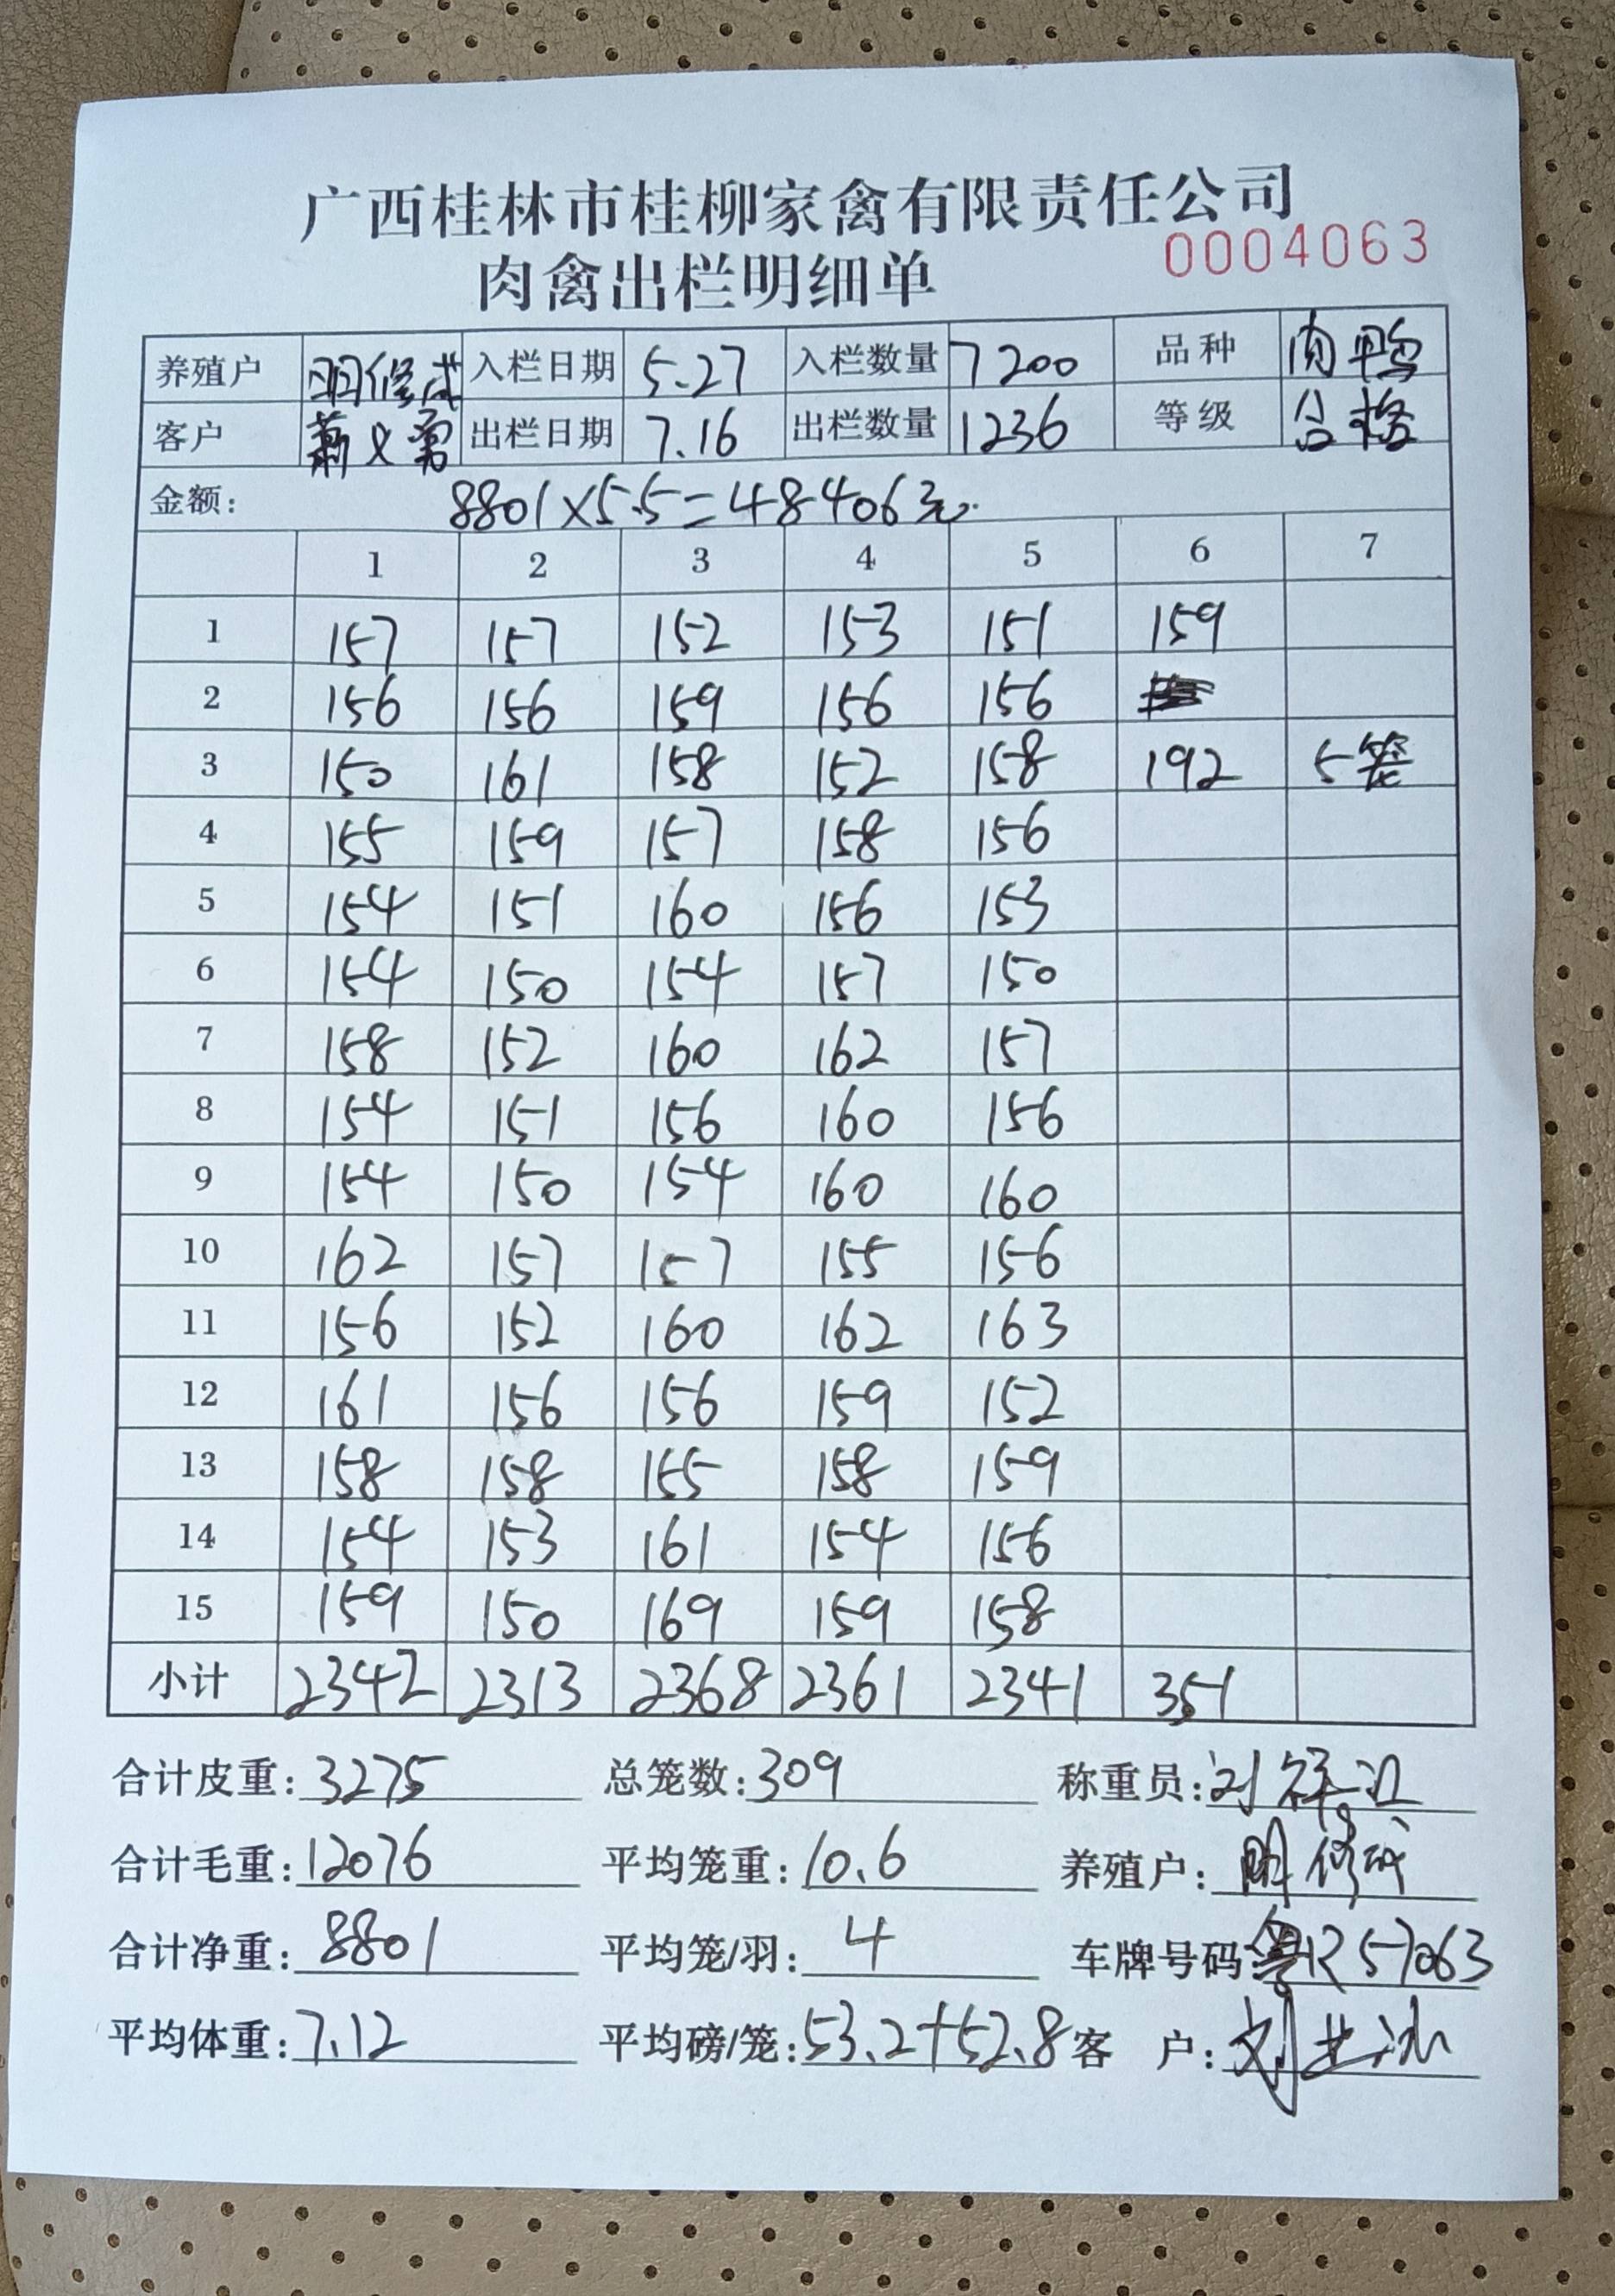 广西桂林市桂柳家禽有限责任公司
0004063
肉禽出栏明细单
养殖户 明修成 入栏日期 5.27 入栏数量 7200 品种 肉鸭
客户 萧义勇 出栏日期 7.16 出栏数量 1236 等级 合格
金额: 8801×5.5=48406元.
1 2 3 4 5 6 7
1 157 157 152 153 151 159
2 156 156 159 156 156
3 150 161 158 152 158 192 5笼
4 155 159 157 158 156
5 154 151 160 156 153
6 154 150 154 157 150
7 158 152 160 162 157
8 154 151 156 160 156
9 154 150 154 160 160
10 162 157 157 155 156
11 156 152 160 162 163
12 161 156 156 159 152
13 158 158 155 158 159
14 154 153 161 154 156
15 159 150 169 159 158
小计 2342 2313 2368 2361 2341 351
合计皮重: 3275 总笼数: 309 称重员: 刘
合计毛重: 12076 平均笼重: 10.6 养殖户: 明修成
合计净重: 8801 平均笼/羽: 4 车牌号码 粤R57063
平均体重: 7.12 平均磅/笼: 53.2+52.8 客 户: 刘